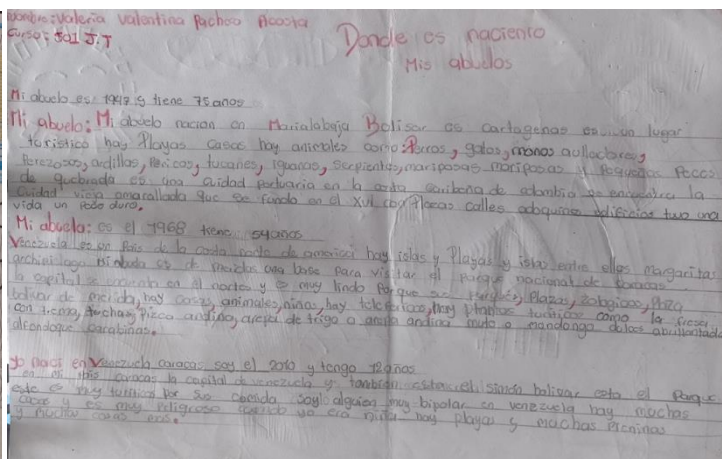 Nombre: Valeria Valentina Pacheco Acosta
Curso: 501 J.T
Donde es naciento
Mis abuelos
Mi abuelo es: 1947 y tiene 75 años
Mi abuelo: Mi abuelo nacion en Marialabaja Bolisar es cartagenas es un lugar
toristico hay Playas casas hay animales como: Perros, gatos, monos aulladores,
Perezosos, ardillas, Pericos, tucanes, iguanas, serpientes, mariposas mariposas y Pequeños Peces
de quebrada es una ciudad portuaria en la costa caribena de colombia se encuentra la
ciudad vieja amorallada que se fundo en el XVI con Plazas calles adoquines edificios tuvo una
vida un poco duro.
Mi abuela: es el 1968 tiene 54 años
Venezuela es un Pais de la costa norte de america hay islas y Playas y islas entre ellos margarita
archipielago de una base para visitar el parque nacional de
la capital en el nortes y es muy lindo porque Parques, Plazas, zologicos, Plaza
bolivar de merida, hay casas, animales, niños, hay telefericos, hay Plantas como la fresa
con crema, trucha, pizca andina, arepa de trigo o arepa andina mute o mondongo dulces abrillantado
alfondoque carabinas.
yo naci en Venezuela caracas soy el 2010 y tengo 12 años
en mi Pais caracas la capital de venezuela y tambien esta el simón bolivar esta el Parque
este es muy turistico por su comida soy alguien muy bipolar en venezuela hay muchas
casas y es muy peligroso cuando yo era niña hay playas y muchas
y muchas cosas mas.